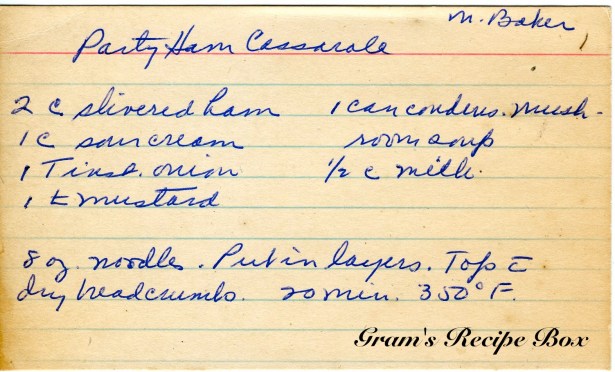 M. Baker
Party Ham Cassarole
2 c slivered ham 1 can condens. mush-
1 c sour cream room soup
1 T inst. onion 1/2 c milk.
1 t mustard
8 oz. noodles. Put in layers. Top c̄
dry breadcrumbs. 20 min. 350° F.
Gram's Recipe Box